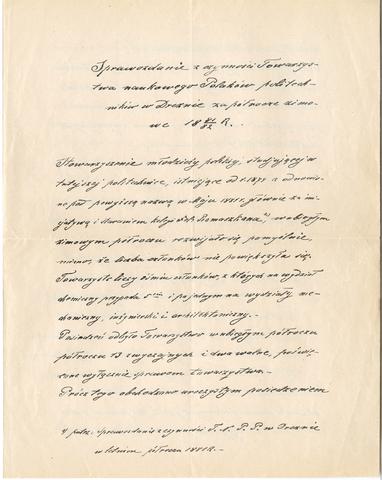 Sprawozdanie z czynności Towarzys-
twa naukowego Polaków politech-
ników w Dreznie za półrocze zimo-
we 18 81/82 R.
Stowarzyszenie młodzieży polskiej, studjującej w
tutejszej politechnice, istniejące od r. 1872 a odnowio-
ne pod powyższą nazwą w Maju 1881, głównie za ini-
cyatywą i staraniem kolegi
zimowym półroczu rozwijało się pomyślnie,
mimo, że liczba członków nie powiększyła się.
Towarzystwo liczy ośmiu członków, z których na wydział
chemiczny przypada 5ciu i po jednym na wydziały me-
chaniczny, inżynierski i architektoniczny.
Posiedzeń odbyło Towarzystwo w ubiegłym półroczu
półroczu 13 zwyczajnych i dwa walne, poświę-
cone wyłącznie sprawom towarzystwa.
Prócz tego obchodzono uroczystym posiedzeniem
patrz: sprawozdanie z czynności T. N. P. P. w Dreznie
w letniem półroczu 1881 R. –